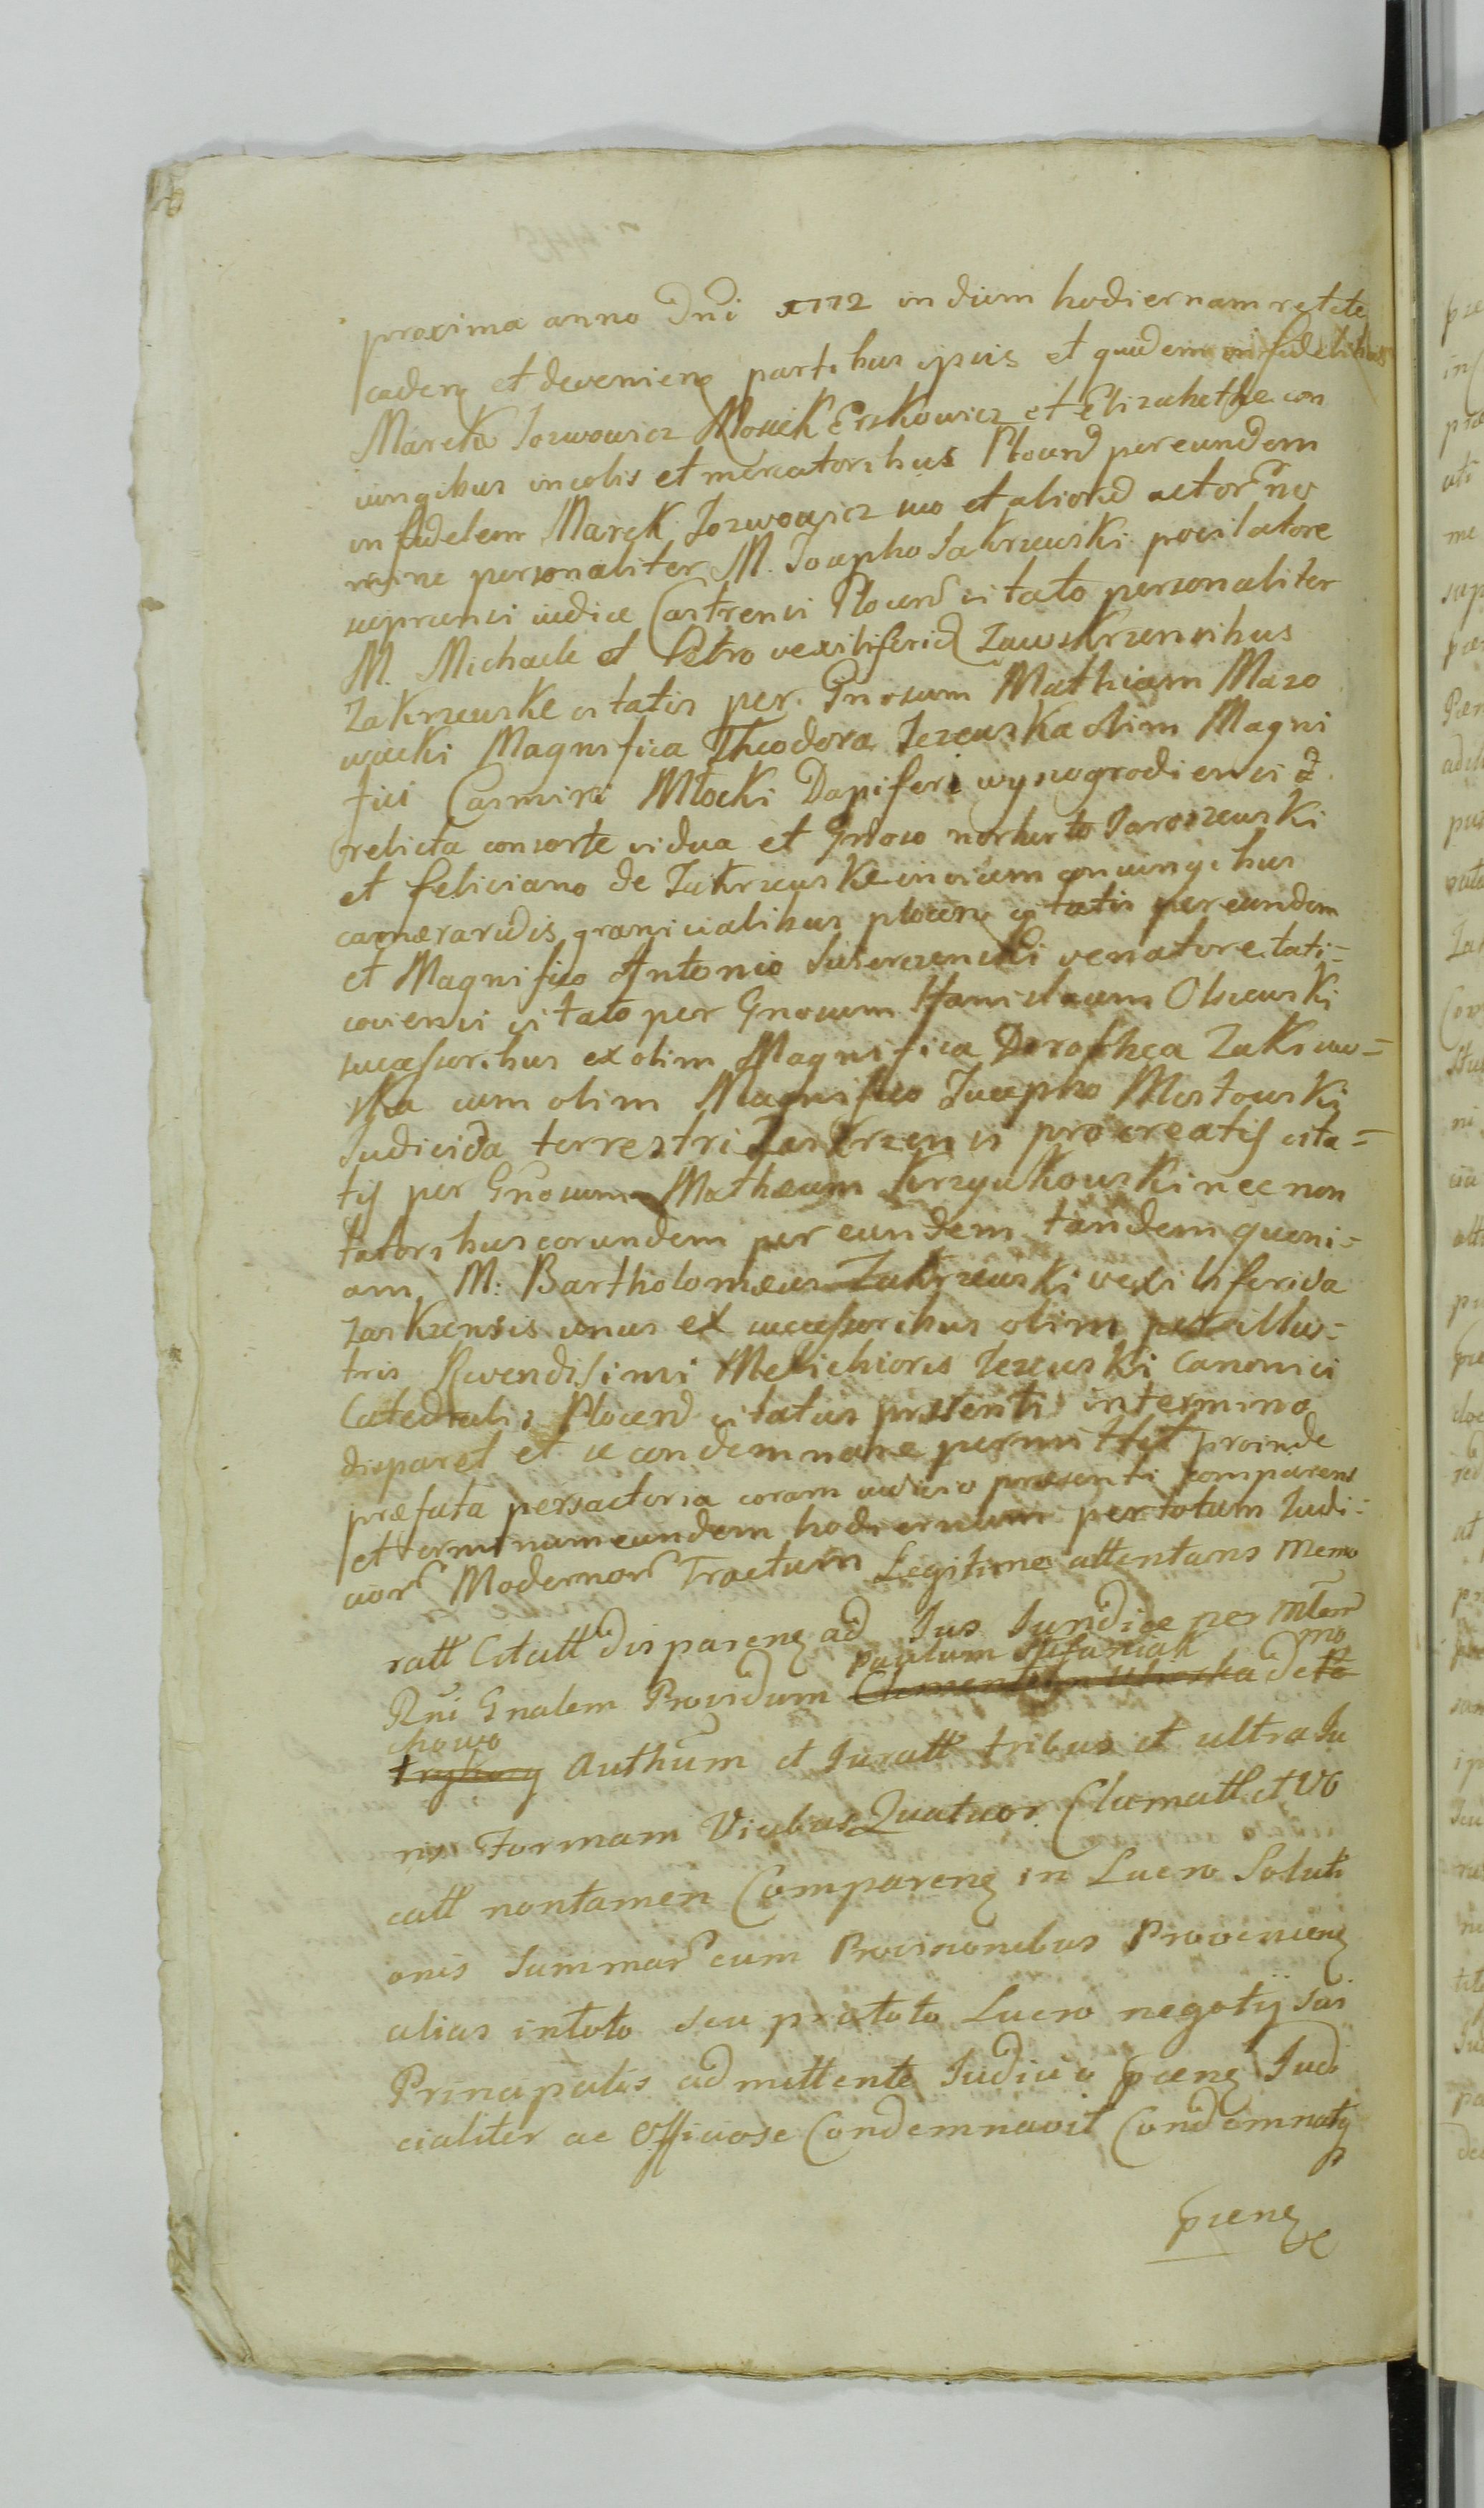 proxima anno Dni 1772 in dium hodiernam
caden et devenien partibus ipsis et quidem infidelibus
Marek Jozwowicz Mosiek Erskowicz et Elizabethe con
iungibus incolis et mercatoribus Plocen per eundem
infidelem Marek Jozwowicz suo et aliorum actor no
mine personaliter M. Josepho Zakrzewski pocilatore
iudice Castrensi Plocen citato personaliter
M. Michaele et Petro vexiliferid Zawskrzensibus
Zakrzewske citatis per Gnosum Mathiam Mazo
wiecki Magnifica Theodora Jezewska olim Magni
fici Casmiri Młocki Dapiferi wyszogrodiensis
relicta consorte vidua et Gnoso norberto Jaroszewski
et feliciano de Zakrzewskie coniungibus
camerariis granicialibus plocen citatis per eundem
et Magnifico Antonio venatore tati=
coviensi citato per Gnosum Stanislaum Olszewski
successoribus ex olim Magnifica Dorothea Zakrzew=
ska cum olim Magnifico Josepho Mostowski
Judicida terrestri Zaskrzensi procreatis cita=
tis per Gnosum Matheum Krzyczkowski nec non
tutoribus eorundem per eundem tandem quoni=
am M: Bartholomeus Zakrzewski vexiliferida
zaskrzensis unus ex successoribus olim per illus=
tris Rvendisimi Melichioris Jezewski Canonici
Catedralis Plocen citatus presenti in termino
disparet et se condemnare permittit proinde
præfata pars actoria coram iudicio præsenti comparens
et terminum eundem hodiernum per totum Judi=
cior Modernor Tractum Legitime attentans Memo
ratt Citatt disparen ad Jus Jundice per Mter
paulum Stefaniak mo
Rni Gnalem Providum de
chowo
Authum et Juratt tribus et ultra Ju
ris Formam Vicibus Quatuor Clamatt et Vo
catt non tamen Comparen in Lucro Soluti
onis Summar cum Provisionibus Provenien
alias in toto seu pro toto Lucro negoty sui
Principalis admittente Judicio pœn Judi
cialiter ac Officiose Condemnavit Condemnaty
pœn